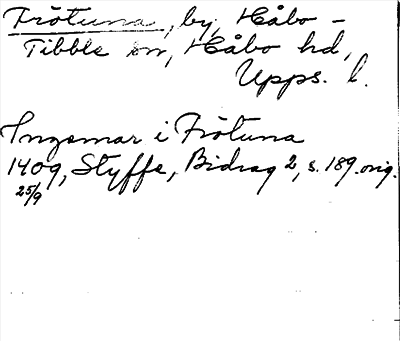 Frötuna, by, Håbo-
Tibble sn, Håbo hd,
Upps. l.
Ingemar i Frötuna
1409, Styffe, Bidrag 2, s. 189. orig.
25/9